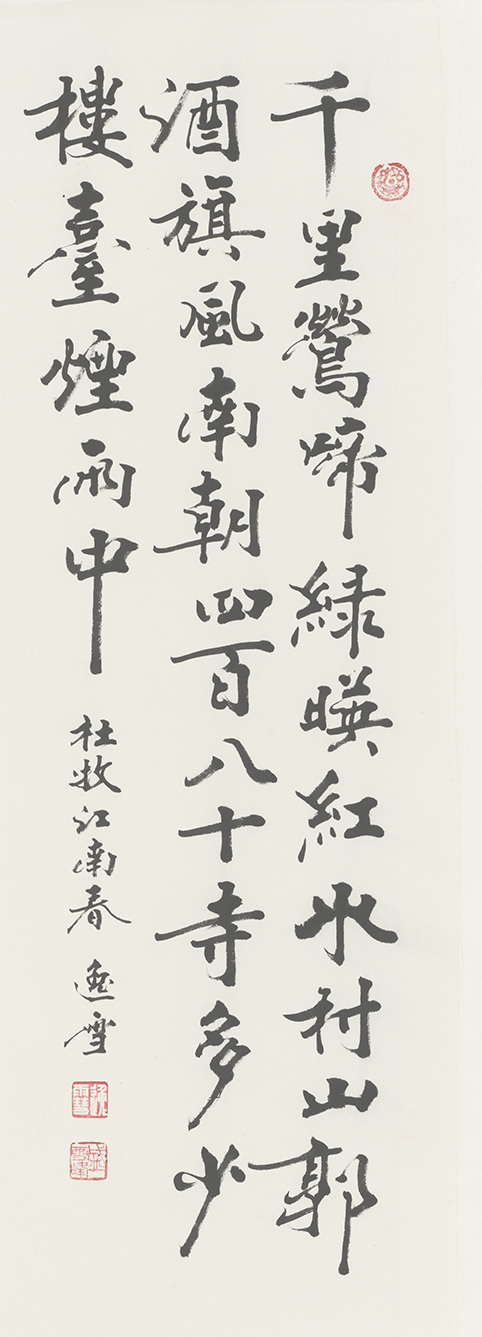 千里鶯啼綠暎紅水村山郭
酒旗風南朝四百八十寺多少
樓臺煙雨中
杜牧江南春 逸雪